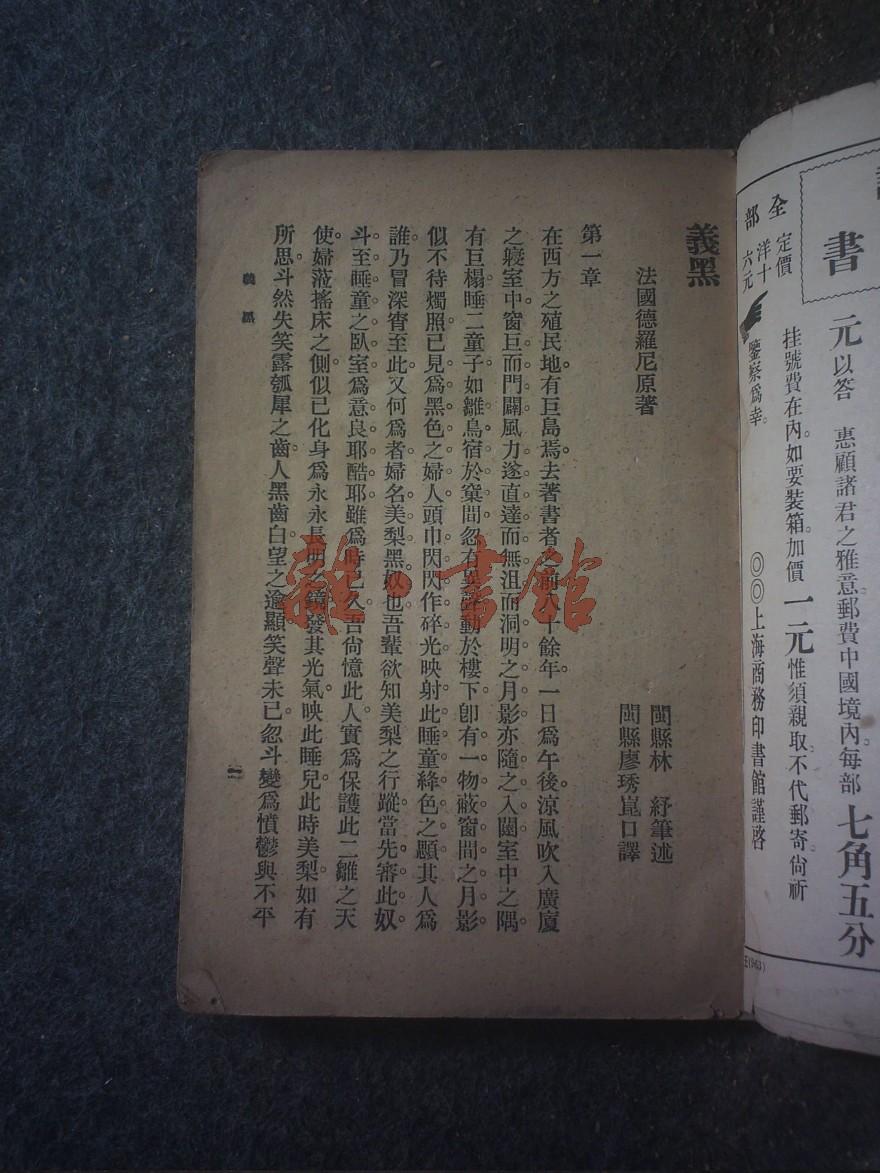 書
元以答 惠顧諸君之雅意郵費中國境內每部七角五分
挂號費在內如要裝箱加價一元惟須親取不代郵寄尙祈
鑒察爲幸。
◎◎上海商務印書館謹啓
全部
定價
洋十
六元
義黑
法國德羅尼原著
閩縣林 紓筆述
閩縣廖琇崑口譯
第一章
在西方之殖民地有巨島焉。去著書者之前八十餘年一日爲午後涼風吹入廣廈
之寢室中窗巨而門闢風力遂直達而無沮而洞明之月影亦隨之入闥室中之隅
有巨榻睡二童子如雛鳥宿於窠間忽有異聲動於樓下卽有一物蔽窗間之月影
似不待燭照已見爲黑色之婦人頭巾閃閃作碎光映射此睡童絳色之顋其人爲
誰乃冒深宵至此又何爲者婦名美梨黑奴也吾輩欲知美梨之行蹤當先審此奴
斗至睡童之臥室爲意良耶酷耶雖爲時已久吾尙憶此人實爲保護此二雛之天
使婦蒞搖床之側似已化身爲永永長明之鏡發其光氣映此睡兒此時美梨如有
所思斗然失笑露瓠犀之齒人黑齒白望之逾顯笑聲未已忽斗變爲憤鬱與不平
義黑
一
雜·書館